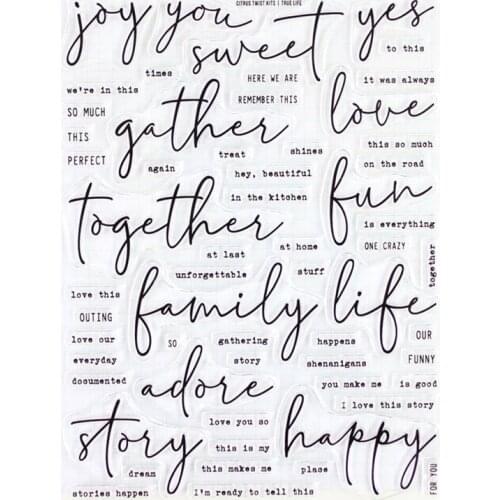 CITRUS TWIST KITS | TRUE LIFE
joy you yes
sweet
to this
times
HERE WE ARE
it was always
we're in this
REMEMBER THIS
SO MUCH
gather
love
THIS
treat
shines
this so much
PERFECT
again
hey, beautiful
on the road
together
in the kitchen
fun
is everything
at last
at home
ONE CRAZY
together
unforgettable
stuff
love this
family life
OUTING
love our
SO
gathering
happens
OUR
everyday
story
shenanigans
FUNNY
documented
adore
you make me
is good
I love this story
story
love you so
happy
this is my
dream
this makes me
place
stories happen
I'm ready to tell this
FOR YOU